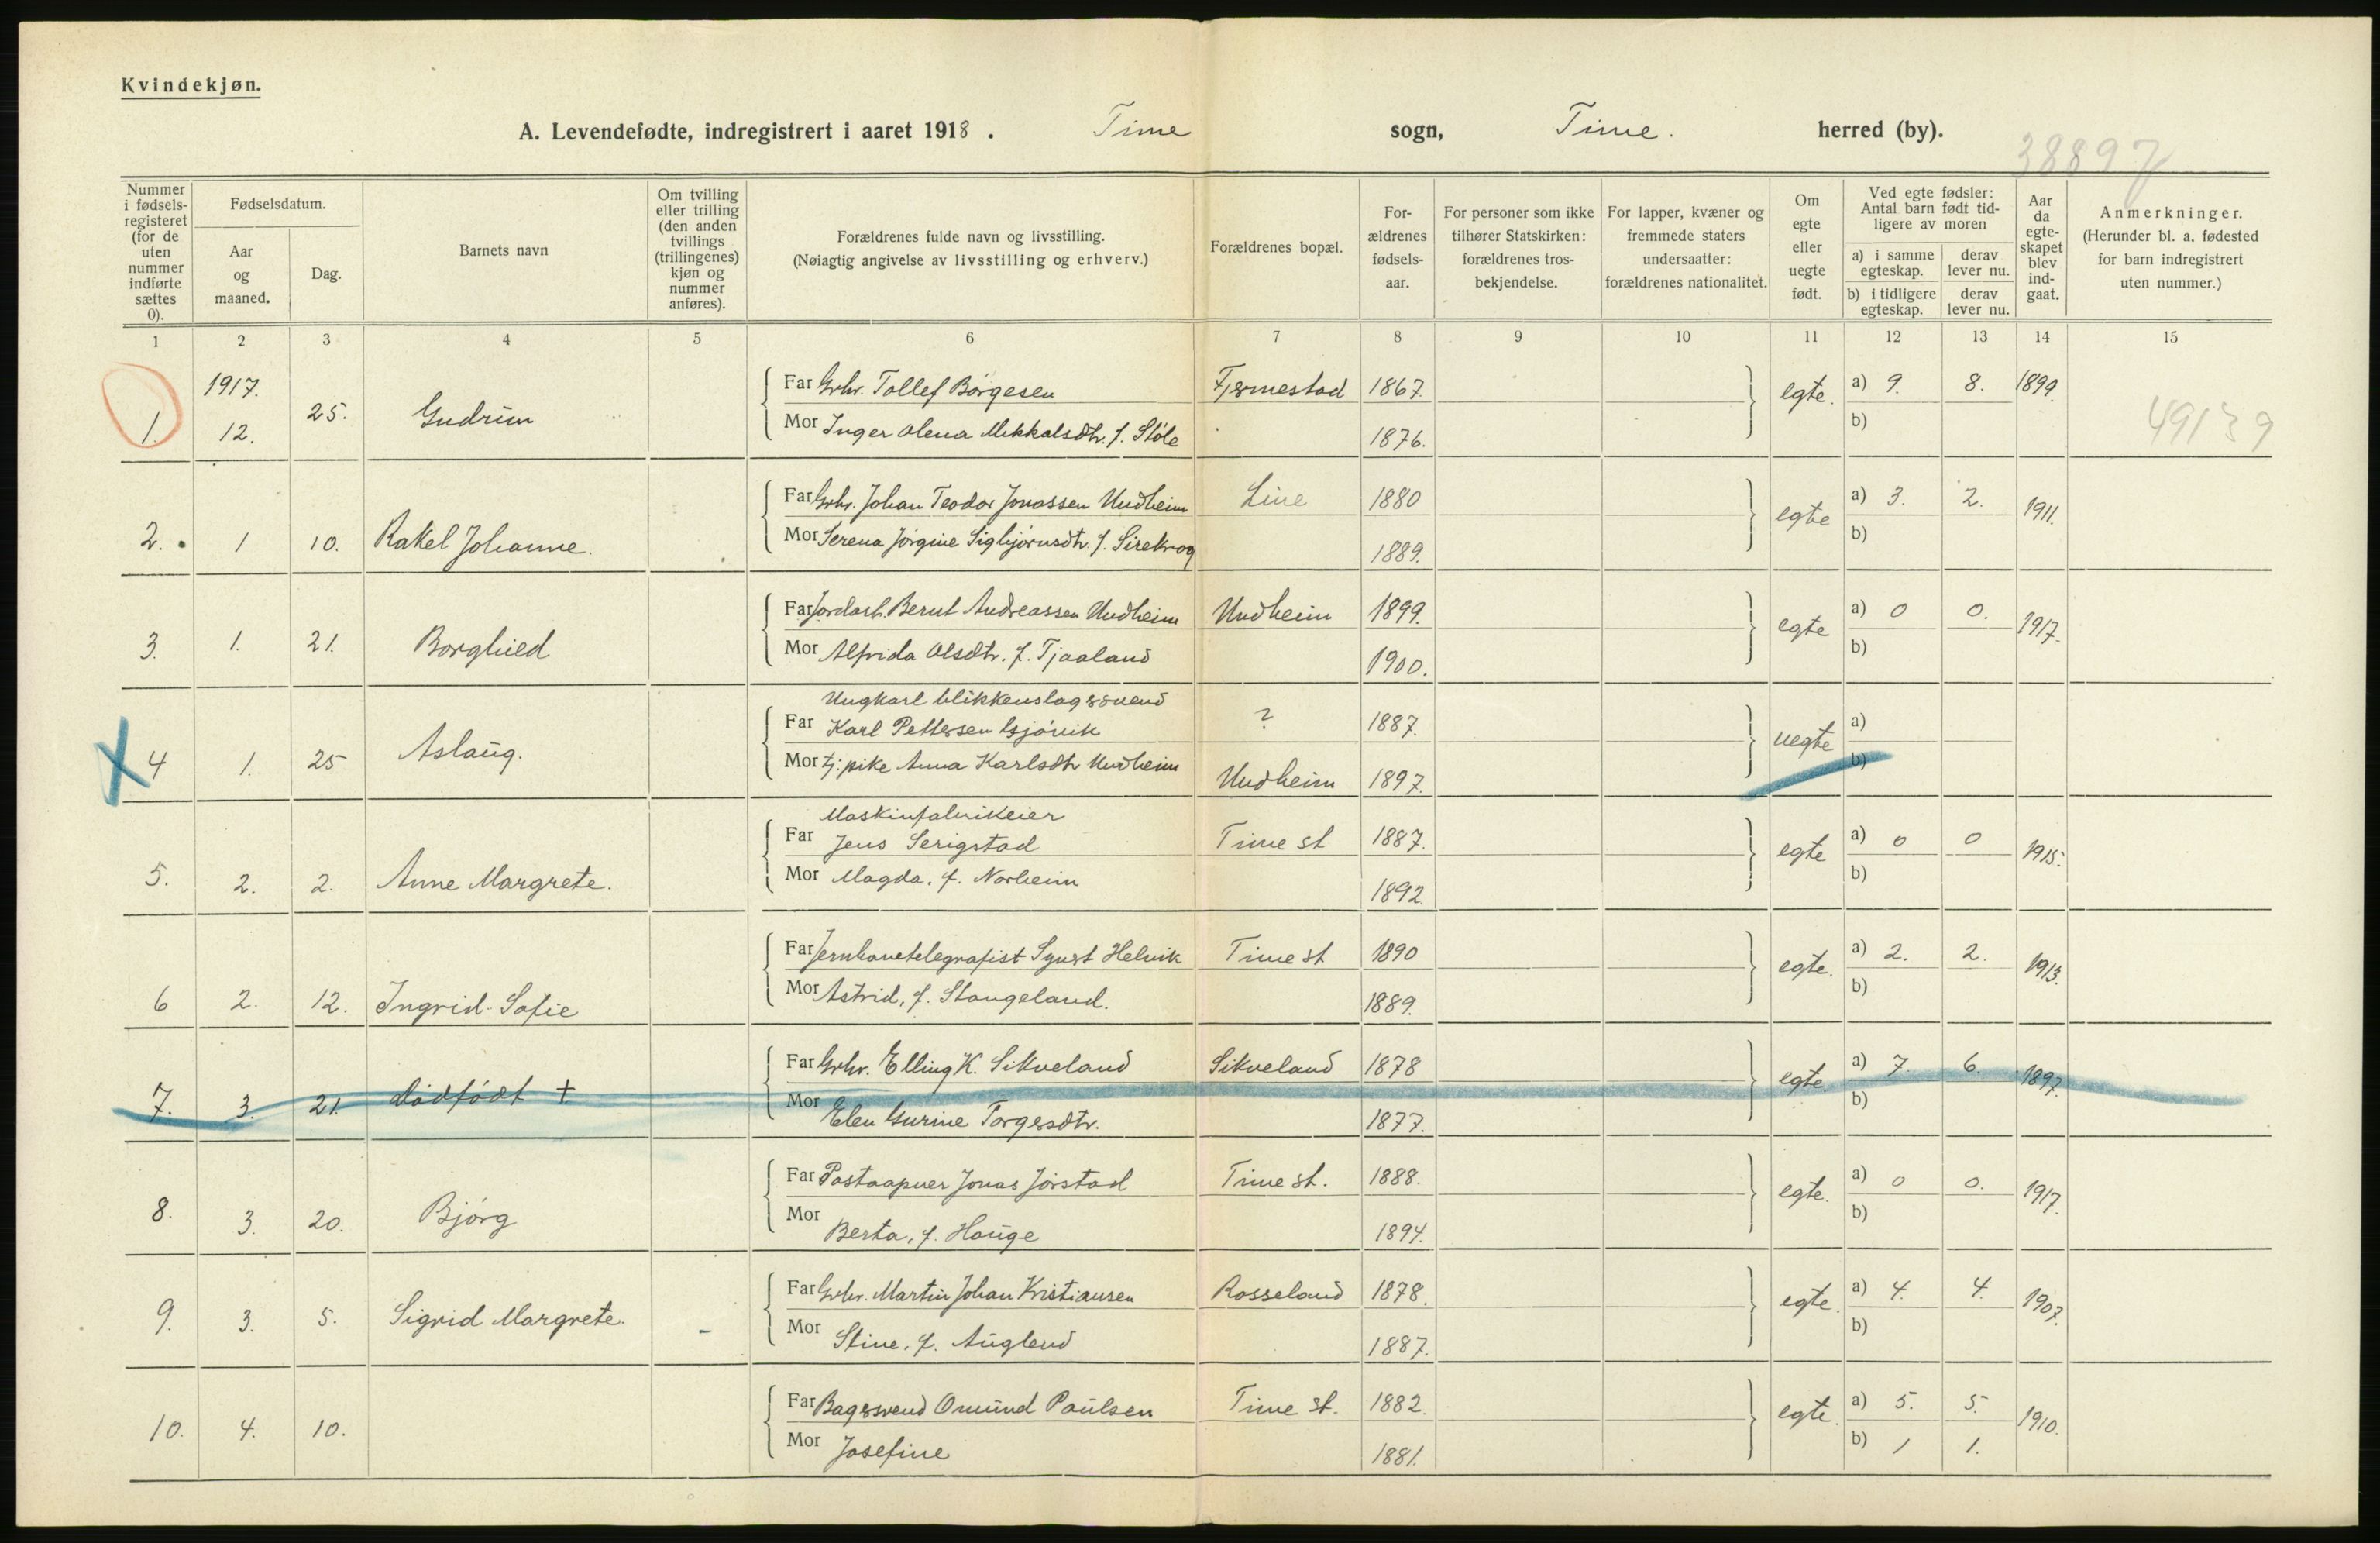 Kvindekjøn.
A. Levendefødte, indregistrert i aaret 1918 . Time sogn, Time. herred (by).
38897
Nummer i fødsels-registeret (for de uten nummer indførte sættes 0).
Fødselsdatum.
Aar og maaned.
Dag.
Barnets navn
Om tvilling eller trilling (den anden tvillings (trillingenes) kjøn og nummer anføres).
Forældrenes fulde navn og livsstilling.
(Nøiagtig angivelse av livsstilling og erhverv.)
Forældrenes bopæl.
For-ældrenes fødsels-aar.
For personer som ikke tilhører Statskirken: forældrenes tros-bekjendelse.
For lapper, kvæner og fremmede staters undersaatter: forældrenes nationalitet.
Om egte eller uegte født.
Ved egte fødsler: Antal barn født tid-ligere av moren
a) i samme egteskap. derav lever nu.
b) i tidligere egteskap. derav lever nu.
Aar da egte-skapet blev ind-gaat.
Anmerkninger.
(Herunder bl. a. fødested for barn indregistrert uten nummer.)
1 2 3 4 5 6 7 8 9 10 11 12 13 14 15
1917.
1. 12. 25. Gudrun
Far Grbr. Tollef Børgesen Fjermestad 1867. egte. a) 9. 8. 1899.
Mor Inger Olena Mikkalsdtr. f. Støle 1876. b)
49139
2. 1 10. Rakel Johanne.
Far Grbr. Johan Teodor Jonassen Undheim Line 1880 egte a) 3. 2. 1911.
Mor Serena Jørgine Sigbjørnsdtr. f. Sirekrog 1889. b)
3. 1. 21. Borghild
Far Jordarb. Bernt Andreassen Undheim Undheim 1899. egte a) 0 0. 1917.
Mor Alfrida Olsdtr. f. Tjaaland 1900. b)
Ungkarl blikkenslagersvend
4 1. 25 Aslaug.
Far Karl Pettersen Gjøvik ? 1887. uegte a)
Mor tj: pike Anna Karlsdtr Undheim Undheim 1897. b)
Maskinfabrikeier
5. 2. 2. Anne Margrete.
Far Jens Serigstad Time st 1887. egte a) 0 0 1915.
Mor Magda, f. Norheim 1892. b)
6 2. 12. Ingrid Sofie
Far Jernbanetelegrafist Synert Helvik Time st 1890 egte. a) 2. 2. 1913.
Mor Astrid, f. Stangeland. 1889. b)
7. 3. 21. dødfødt +
Far Grbr. Elling K. Sikveland Sikveland 1878 egte a) 7. 6. 1897.
Mor Elen Gurine Torgersdtr. 1877. b)
8. 3. 20. Bjørg
Far Postaapner Jonas Jørstad Time st. 1888. egte. a) 0 0. 1917.
Mor Berta, f. Hauge 1894. b)
9. 3. 5. Sigrid Margrete. -
Far Grbr. Martin Johan Kristiansen Rosseland 1878. egte. a) 4. 4. 1907.
Mor Stine, f. Auglend 1887. b)
10. 4. 10.
Far Bagersvend Omund Paulsen Time st. 1882. egte. a) 5. 5. 1910.
Mor Josefine 1881. b) 1 1.